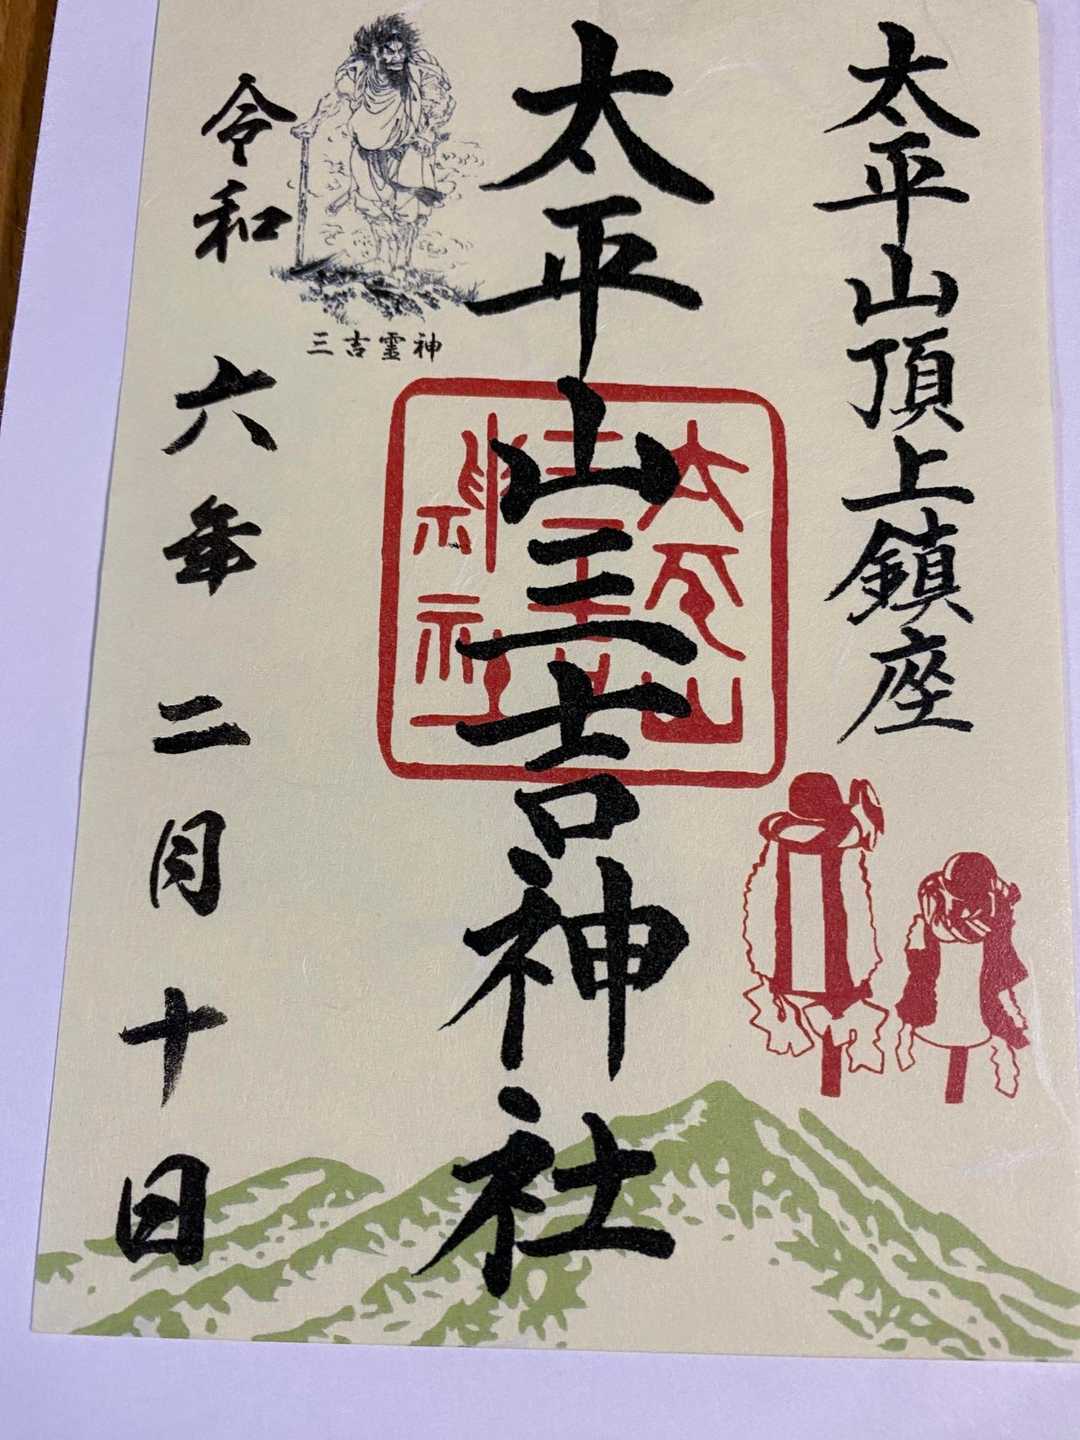 太平山頂上鎮座
太平山三吉神社
太平山
三吉
神社
三吉霊神
令和六年二月十日